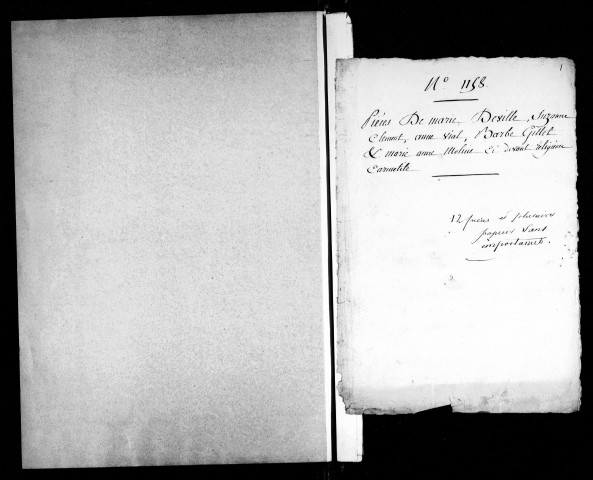 1
N° 1158.
Pièces De marie Deville, Suzanne
Clement, anne Vial, Barbe Gillet
& marie anne Moline Ci devant religieuse
Carmelite
12 pieces et plusieurs
papiers sans
importance.